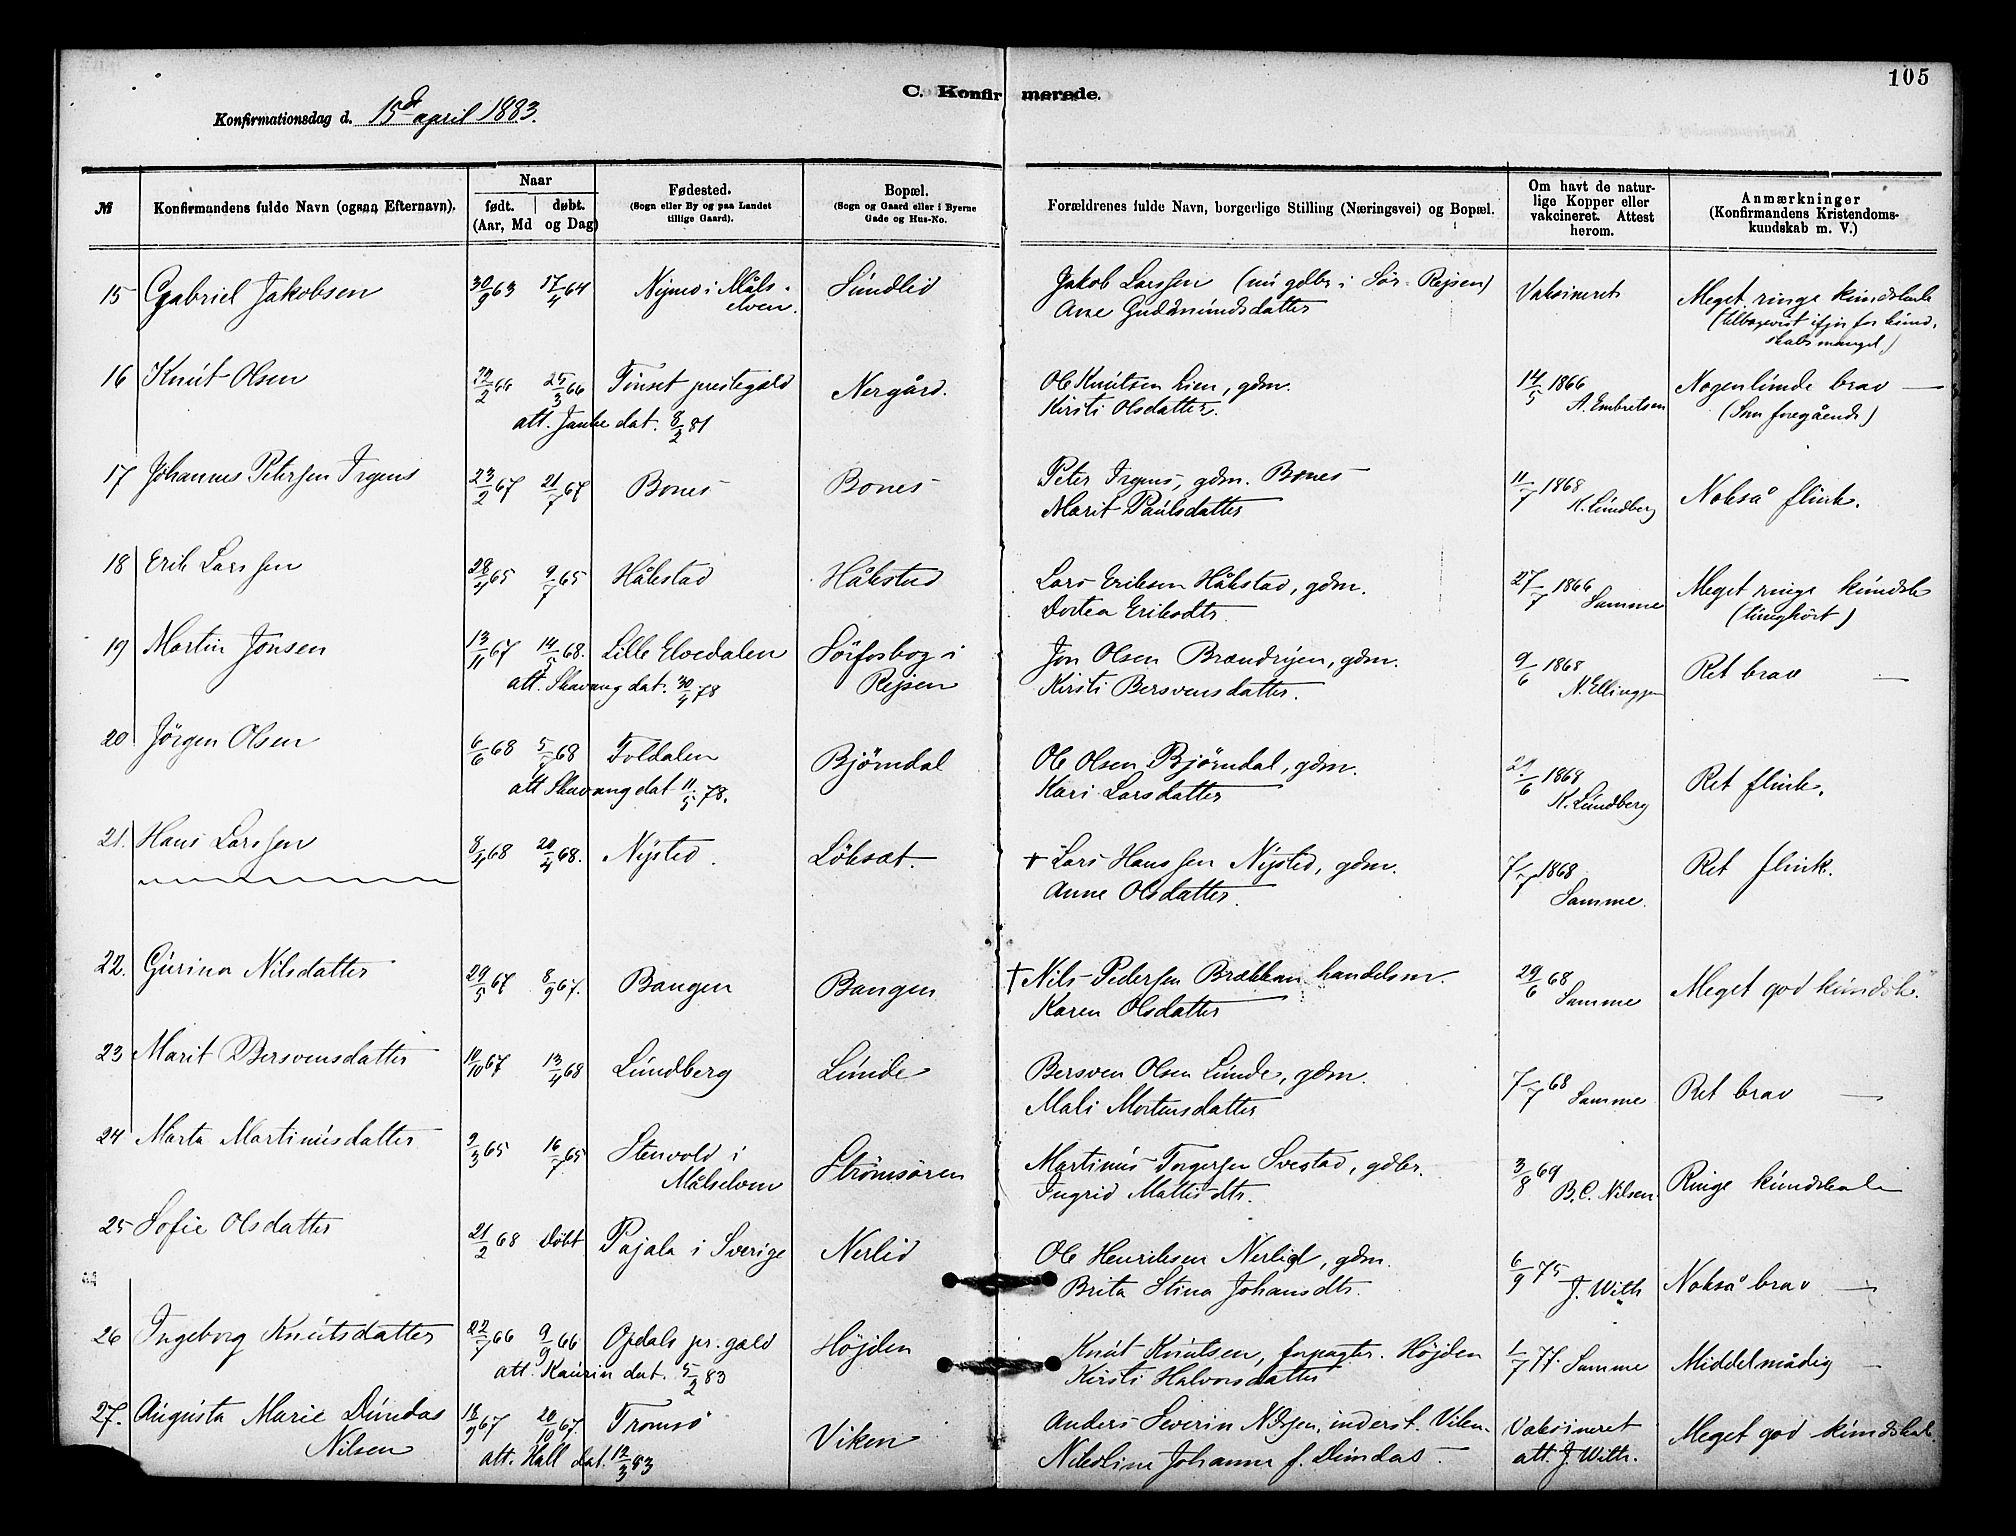 105
C. Konfirmerede.
Konfirmationsdag d. 15d april 1883.
№ | Konfirmandens fulde Navn (ogsaa Efternavn). | Naar født. (Aar, Md | døbt. og Dag) | Fødested. (Sogn eller By og paa Landet tillige Gaard). | Bopæl. (Sogn og Gaard eller i Byerne Gade og Hus-No. | Forældrenes fulde Navn, borgerlige Stilling (Næringsvei) og Bopæl. | Om havt de naturlige Kopper eller vakcineret. Attest herom. | Anmærkninger (Konfirmandens Kristendomskundskab m. V.)
15 Gabriel Jakobsen 30/9 63 17/4 64 Nymo i Målselven. Sundlid Jakob Larssen (nu gdbr i Sør-Rejsen) Vaksineret Meget ringe kundskab
Ane Guddmundsdatter (tilbagevist ifjor for kundskabsmangel)
16 Knut Olsen 22/2 66 25/3 66 Tønset prestegæld Nergård. Ole Knutsen Lien, gdm. 14/5 1866 Nogenlunde brav —
att. Janke dat. 8/2 81 Kirsti Olsdatter. A. Embretsen (Som foregående)
17 Johannes Petersen Irgens 23/2 67 21/7 67 Bones Bones Peter Irgens, gdm. Bones 11/7 1868 Nokså flink.
Marit Paulsdatter K. Lundberg
18 Erik Larssen 28/4 65 9/7 65 Håkstad Håkstad Lars Eriksen Håkstad, gdm. 27/7 1866 Meget ringe kundsk
Dortea Eriksdtr. Samme (tunghørt)
19 Martin Jonsen 13/11 67 14/5 68. Lille Elvedalen Sørfosbog i Rejsen Jon Olsen Brændryen, gdm. 9/6 1868 Ret brav —
att. Skavang dat. 30/4 78 Kirsti Bersvensdatter. N. Ellingsen
20 Jørgen Olsen 6/6 68 5/7 68 Foldalen Bjørndal Ole Olsen Bjørndal, gdm. 21/6 1868 Ret flink.
att Skavang dat 11/5 78. Kari Larsdatter K. Lundberg
21. Hans Larssen 8/4 68 20/4 68. Nysted. Løksæt. † Lars Hanssen Nysted, gdm. 7/7 1868 Ret flink.
Anne Olsdatter. Samme.
22. Gurina Nilsdatter 29/5 67 8/9 67. Bangen Bangen † Nils Pedersen Brækkan handelsm. 29/6 68 Meget god kundsk.
Karen Olsdatter Samme
23 Marit Bersvensdatter 10/10 67 13/4 68 Lundberg Lunde Bersven Olsen Lunde, gdm. 7/7 68 Samme Ret brav —
Mali Mortensdatter
24 Marta Martinusdatter 9/3 65 16/7 65 Stenvold i Målselven Strømsøren Martinus Torgersen Svestad, gdbr. 3/8 69 Ringe kundskab
Ingrid Mattisdtr. B.C. Nilsen.
25 Sofie Olsdatter 21/2 68 Døbt Pajala i Sverige Nerlid Ole Henriksen Nerlid, gdm. 6/9 75 Nokså brav —
Brita Stina Johansdtr. J. With
26 Ingeborg Knutsdatter 22/7 66 9/9 66 Opdals pr. gæld Højden Knut Knutsen, forpagter. Højden 1/7 77. Samme Middelmådig —
att. Kaurin dat. 5/2 83 Kirsti Halvorsdatter
27. Augusta Marie Dundas Nilsen 18/9 67 20/10 67. Tromsø Viken Anders Severin Nilsen, inderst. Viken Vaksineret Meget god kundskab.
att. Hall dat. 12/3 83 Nikoline Johanne f. Dundas. att. J. With.